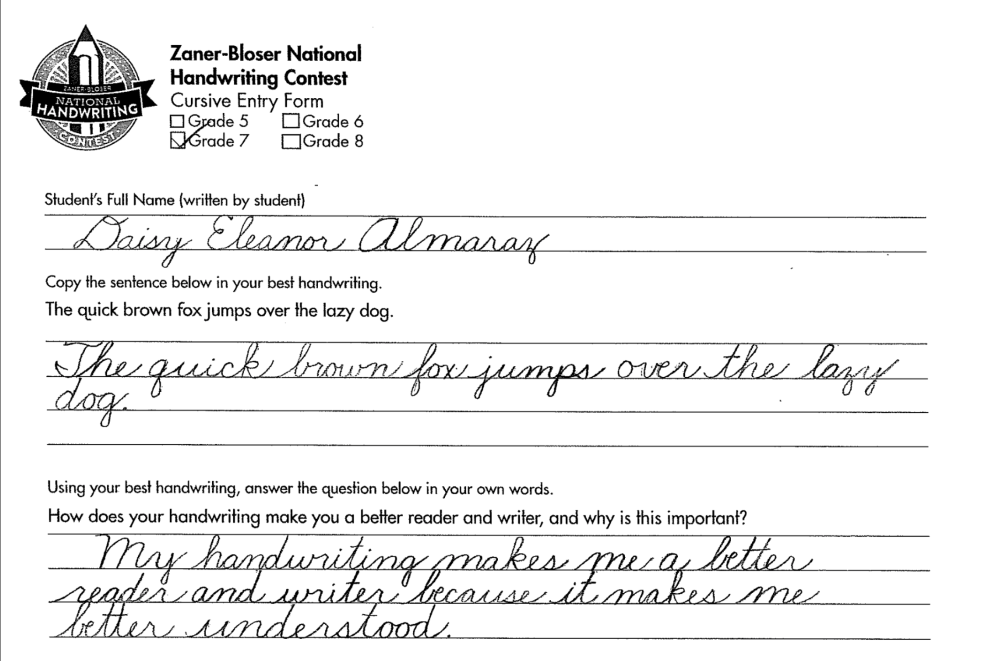 ZANER-BLOSER
NATIONAL
HANDWRITING
CONTEST
Zaner-Bloser National
Handwriting Contest
Cursive Entry Form
Grade 5 Grade 6
Grade 7 Grade 8
Student's Full Name (written by student)
Daisy Eleanor Almaraz
Copy the sentence below in your best handwriting.
The quick brown fox jumps over the lazy dog.
The quick brown fox jumps over the lazy
dog.
Using your best handwriting, answer the question below in your own words.
How does your handwriting make you a better reader and writer, and why is this important?
My handwriting makes me a better
reader and writer because it makes me
better understood.